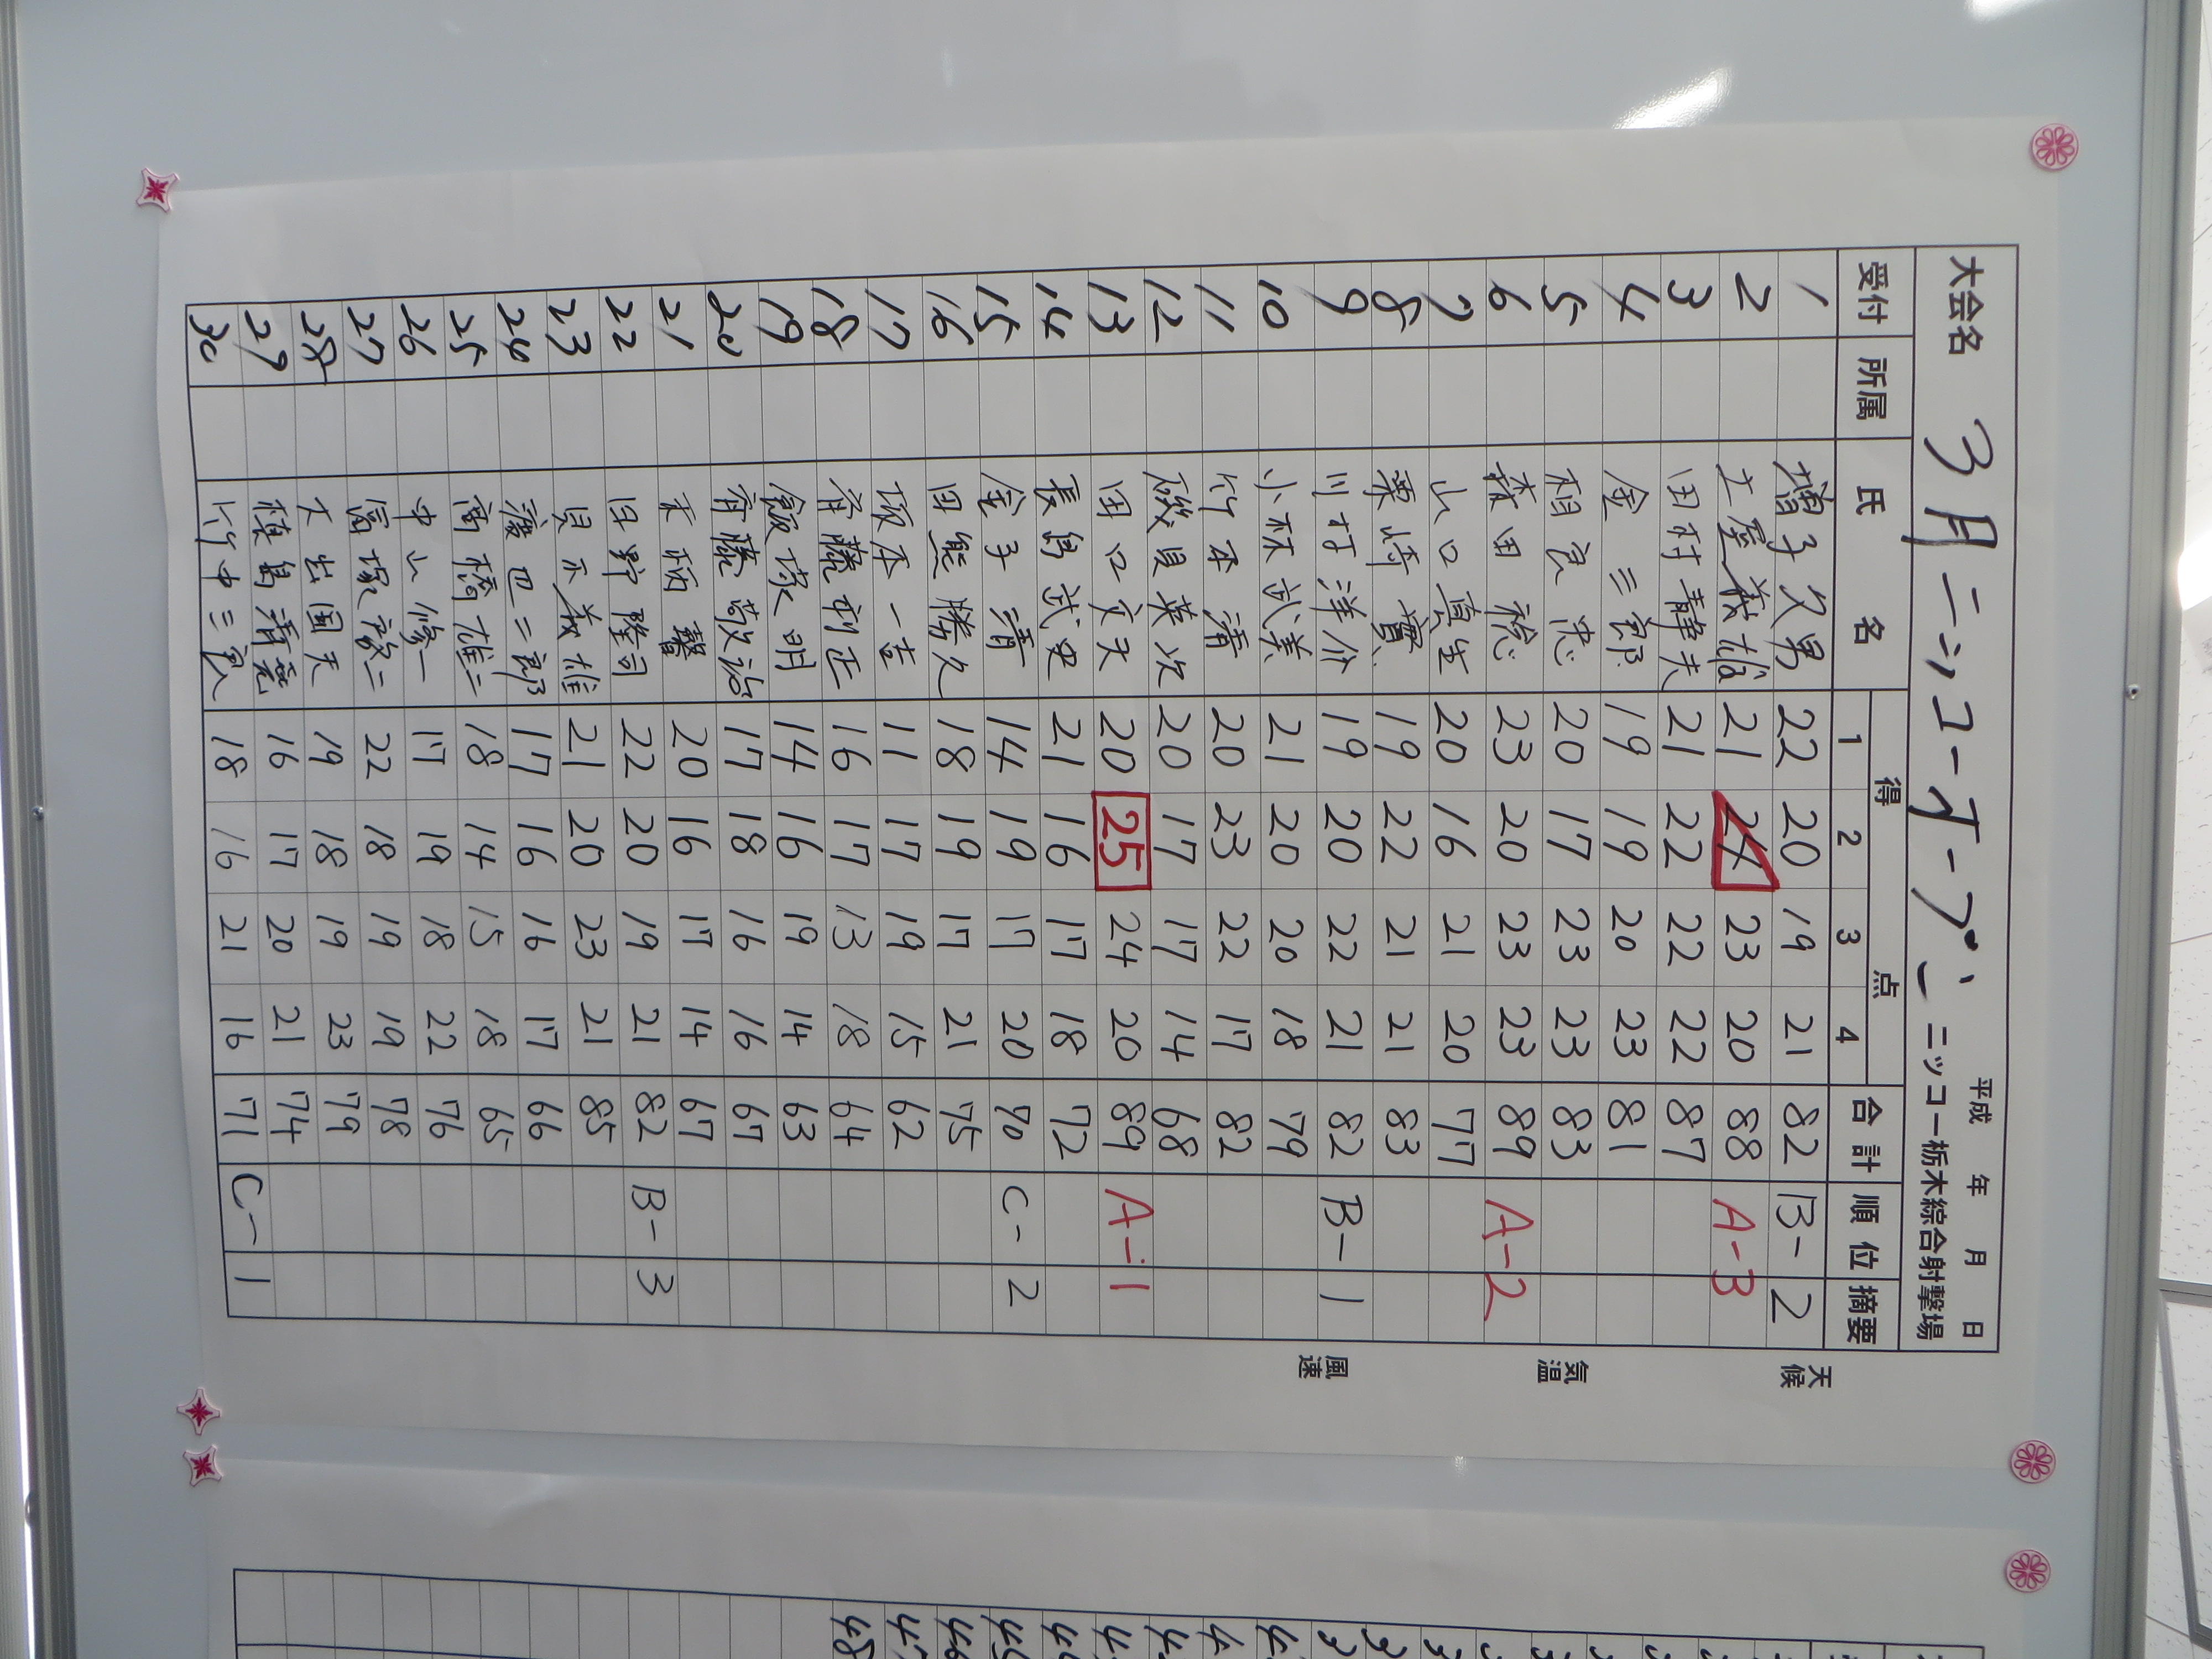 大会名 3月ニッコーオープン 平成 年 月 日
ニッコー栃木綜合射撃場
受付 所属 氏名 得点 合計 順位 摘要
1 2 3 4
1 増子久男 22 20 19 21 82 B-2
2 土屋義雄 21 24 23 20 88 A-3
3 田村韓夫 21 22 22 22 87
4 金三郎 19 19 20 23 81
5 相良忠 20 17 23 23 83
6 森田稔 23 20 23 23 89 A-2
7 山口真生 20 16 21 20 77
8 栗崎實 19 22 21 21 83
9 川村洋介 19 20 22 21 82 B-1
10 小林武美 21 20 20 18 79
11 竹本清 20 23 22 17 82
12 磯貝英次 20 17 17 14 68
13 田口文夫 20 25 24 20 89 A-1
14 長島武史 21 16 17 18 72
15 金子清 14 19 17 20 70 C-2
16 田熊勝久 18 19 17 21 75
17 坂本一吉 11 17 19 15 62
18 斉藤利正 16 17 13 18 64
19 飯塚明 14 16 19 14 63
20 斉藤敬治 17 18 16 16 67
21 20 16 17 14 67
22 日野隆司 22 20 19 21 82 B-3
23 義雄 21 20 23 21 85
24 二郎 17 16 16 17 66
25 髙橋雄二 18 14 15 18 65
26 中山修一 17 19 18 22 76
27 冨塚啓二 22 18 19 19 78
28 大出国夫 19 18 19 23 79
29 槙島清 16 17 20 21 74
30 竹中三 18 16 21 16 71 C-1
天候
気温
風速
45
46
47
48